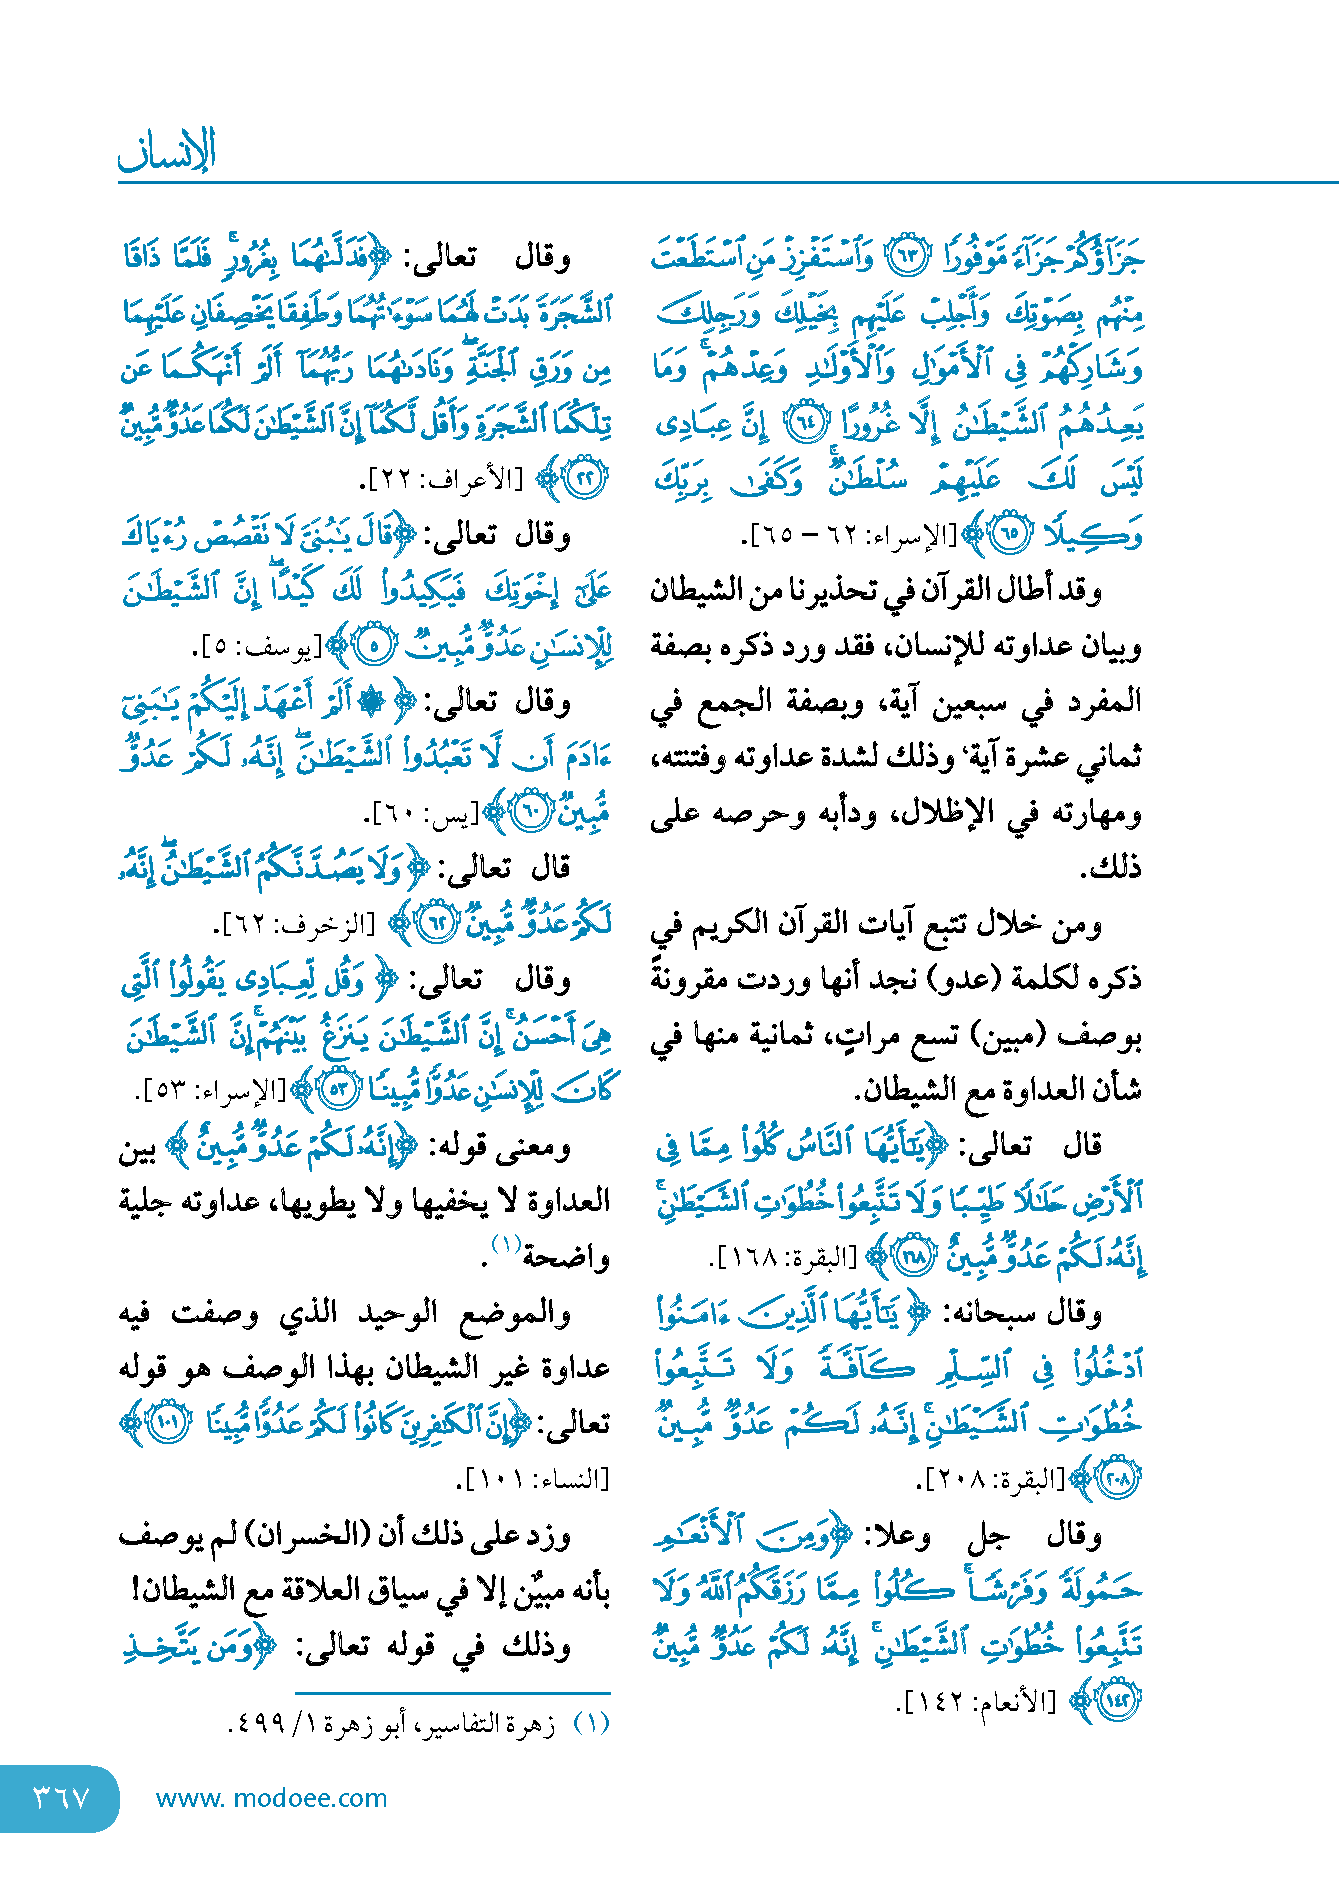 الإنسان
جَزَآؤُكُمْ جَزَآءً مَّوْفُورًا ۝٦٣ وَٱسْتَفْزِزْ مَنِ ٱسْتَطَعْتَ
مِنْهُم بِصَوْتِكَ وَأَجْلِبْ عَلَيْهِم بِخَيْلِكَ وَرَجِلِكَ
وَشَارِكْهُمْ فِى ٱلْأَمْوَٰلِ وَٱلْأَوْلَٰدِ وَعِدْهُمْ ۚ وَمَا
يَعِدُهُمُ ٱلشَّيْطَٰنُ إِلَّا غُرُورًا ۝٦٤ إِنَّ عِبَادِى
لَيْسَ لَكَ عَلَيْهِمْ سُلْطَٰنٌ ۚ وَكَفَىٰ بِرَبِّكَ
وَكِيلًا ۝٦٥﴾ [الإسراء: ٦٢ - ٦٥].
وقد أطال القرآن في تحذيرنا من الشيطان
وبيان عداوته للإنسان، فقد ورد ذكره بصفة
المفرد في سبعين آية، وبصفة الجمع في
ثماني عشرة آية؛ وذلك لشدة عداوته وفتنته،
ومهارته في الإظلال، ودأبه وحرصه على
ذلك.
ومن خلال تتبع آيات القرآن الكريم في
ذكره لكلمة (عدو) نجد أنها وردت مقرونةً
بوصف (مبين) تسع مراتٍ، ثمانية منها في
شأن العداوة مع الشيطان.
قال تعالى: ﴿يَٰٓأَيُّهَا ٱلنَّاسُ كُلُوا۟ مِمَّا فِى
ٱلْأَرْضِ حَلَٰلًا طَيِّبًا وَلَا تَتَّبِعُوا۟ خُطُوَٰتِ ٱلشَّيْطَٰنِ ۚ
إِنَّهُۥ لَكُمْ عَدُوٌّ مُّبِينٌ ۝١٦٨﴾ [البقرة: ١٦٨].
وقال سبحانه: ﴿يَٰٓأَيُّهَا ٱلَّذِينَ ءَامَنُوا۟
ٱدْخُلُوا۟ فِى ٱلسِّلْمِ كَآفَّةً وَلَا تَتَّبِعُوا۟
خُطُوَٰتِ ٱلشَّيْطَٰنِ ۚ إِنَّهُۥ لَكُمْ عَدُوٌّ مُّبِينٌ
۝٢٠٨﴾ [البقرة: ٢٠٨].
وقال جل وعلا: ﴿وَمِنَ ٱلْأَنْعَٰمِ
حَمُولَةً وَفَرْشًا ۚ كُلُوا۟ مِمَّا رَزَقَكُمُ ٱللَّهُ وَلَا
تَتَّبِعُوا۟ خُطُوَٰتِ ٱلشَّيْطَٰنِ ۚ إِنَّهُۥ لَكُمْ عَدُوٌّ مُّبِينٌ
۝١٤٢﴾ [الأنعام: ١٤٢].
وقال تعالى: ﴿فَدَلَّىٰهُمَا بِغُرُورٍ ۚ فَلَمَّا ذَاقَا
ٱلشَّجَرَةَ بَدَتْ لَهُمَا سَوْءَٰتُهُمَا وَطَفِقَا يَخْصِفَانِ عَلَيْهِمَا
مِن وَرَقِ ٱلْجَنَّةِ ۖ وَنَادَىٰهُمَا رَبُّهُمَآ أَلَمْ أَنْهَكُمَا عَن
تِلْكُمَا ٱلشَّجَرَةِ وَأَقُل لَّكُمَآ إِنَّ ٱلشَّيْطَٰنَ لَكُمَا عَدُوٌّ مُّبِينٌ
۝٢٢﴾ [الأعراف: ٢٢].
وقال تعالى: ﴿قَالَ يَٰبُنَىَّ لَا تَقْصُصْ رُءْيَاكَ
عَلَىٰٓ إِخْوَتِكَ فَيَكِيدُوا۟ لَكَ كَيْدًا ۖ إِنَّ ٱلشَّيْطَٰنَ
لِلْإِنسَٰنِ عَدُوٌّ مُّبِينٌ ۝٥﴾ [يوسف: ٥].
وقال تعالى: ﴿۞ أَلَمْ أَعْهَدْ إِلَيْكُمْ يَٰبَنِىٓ
ءَادَمَ أَن لَّا تَعْبُدُوا۟ ٱلشَّيْطَٰنَ ۖ إِنَّهُۥ لَكُمْ عَدُوٌّ
مُّبِينٌ ۝٦٠﴾ [يس: ٦٠].
قال تعالى: ﴿وَلَا يَصُدَّنَّكُمُ ٱلشَّيْطَٰنُ ۖ إِنَّهُۥ
لَكُمْ عَدُوٌّ مُّبِينٌ ۝٦٢﴾ [الزخرف: ٦٢].
وقال تعالى: ﴿وَقُل لِّعِبَادِى يَقُولُوا۟ ٱلَّتِى
هِىَ أَحْسَنُ ۚ إِنَّ ٱلشَّيْطَٰنَ يَنزَغُ بَيْنَهُمْ ۚ إِنَّ ٱلشَّيْطَٰنَ
كَانَ لِلْإِنسَٰنِ عَدُوًّا مُّبِينًا ۝٥٣﴾ [الإسراء: ٥٣].
ومعنى قوله: ﴿إِنَّهُۥ لَكُمْ عَدُوٌّ مُّبِينٌ﴾ بين
العداوة لا يخفيها ولا يطويها، عداوته جلية
واضحة(١).
والموضع الوحيد الذي وصفت فيه
عداوة غير الشيطان بهذا الوصف هو قوله
تعالى: ﴿إِنَّ ٱلْكَٰفِرِينَ كَانُوا۟ لَكُمْ عَدُوًّا مُّبِينًا ۝١٠١﴾
[النساء: ١٠١].
وزد على ذلك أن (الخسران) لم يوصف
بأنه مبيٌن إلا في سياق العلاقة مع الشيطان!
وكذلك في قوله تعالى: ﴿وَمَن يَتَّخِذِ
(١) زهرة التفاسير، أبو زهرة ١/ ٤٩٩.
٣٦٧
www. modoee.com